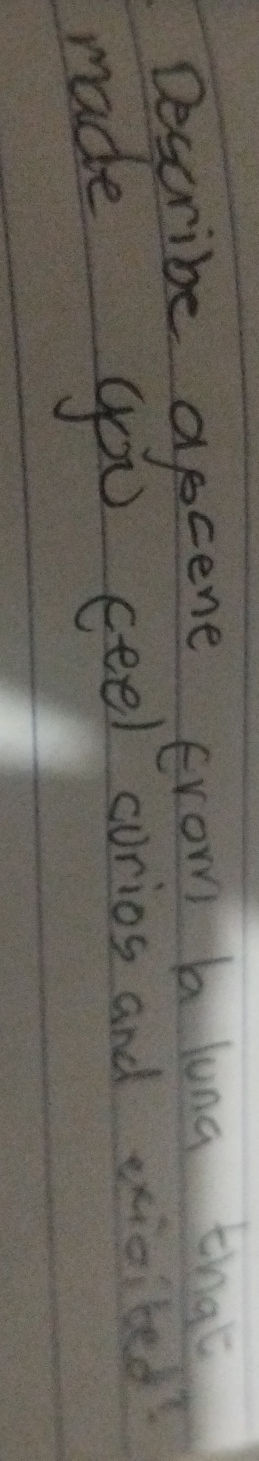 Describe a scene from b luna that
made you feel curios and exioited?